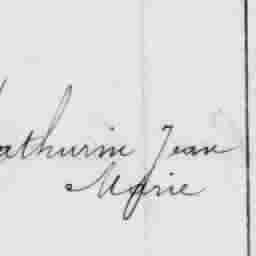 athurin Jean
Marie